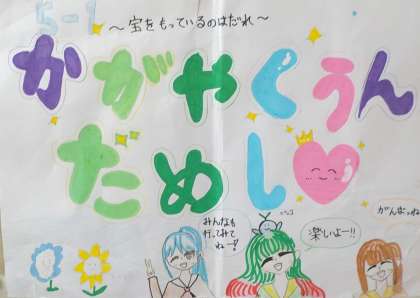 5-1
～宝をもっているのはだれ～
かがやくうん
だめし
みんなも
行ってみて
ねー!
楽しいよー!!
がんばってね